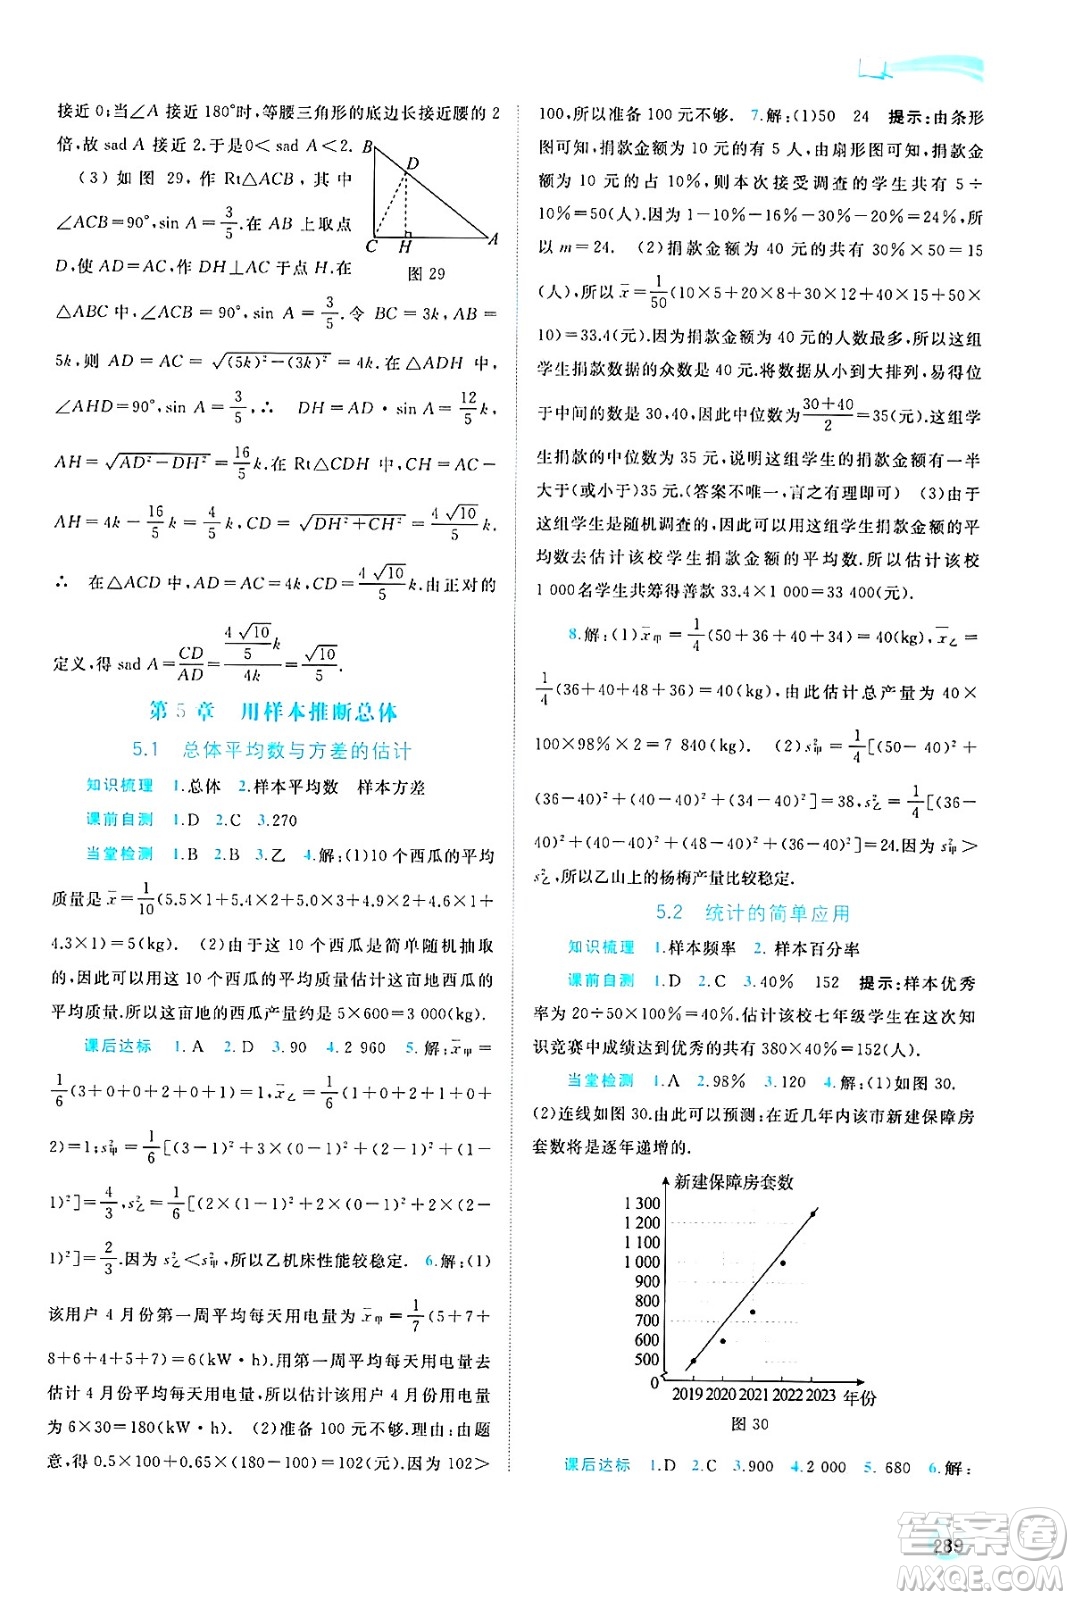 接近 0;当∠A 接近 180°时,等腰三角形的底边长接近腰的 2
倍,故 sad A 接近 2.于是0＜ sad A＜2.
(3) 如图 29,作 Rt△ACB,其中
∠ACB=90°,sin A=3/5.在 AB 上取点
D,使 AD=AC,作 DH⊥AC 于点 H.在
B
D
C
H
A
图 29
△ABC 中,∠ACB=90°,sin A=3/5.令 BC=3k,AB=
5k,则 AD=AC=√((5k)²-(3k)²)=4k.在△ADH 中,
∠AHD=90°,sin A=3/5,∴ DH=AD·sin A=12/5k,
AH=√(AD²-DH²)=16/5k.在 Rt△CDH 中,CH=AC-
AH=4k-16/5k=4/5k,CD=√(DH²+CH²)=4√10/5k.
∴ 在△ACD 中,AD=AC=4k,CD=4√10/5k.由正对的
定义,得 sad A=CD/AD=(4√10/5k)/4k=√10/5.
第 5 章 用样本推断总体
5.1 总体平均数与方差的估计
知识梳理 1.总体 2.样本平均数 样本方差
课前自测 1.D 2.C 3.270
当堂检测 1.B 2.B 3.乙 4.解:(1)10 个西瓜的平均
质量是 x̄=1/10(5.5×1+5.4×2+5.0×3+4.9×2+4.6×1+
4.3×1)=5(kg). (2)由于这 10 个西瓜是简单随机抽取
的,因此可以用这 10 个西瓜的平均质量估计这亩地西瓜的
质量,所以这亩地的西瓜产量约是 5×600=3 000(kg).
课后达标 1.A 2.D 3.90 4.2 960 5.解:x̄甲=
1/6(3+0+0+2+0+1)=1,x̄乙=1/6(1+0+2+1+0+
2)=1;s²甲=1/6[(3-1)²+3×(0-1)²+(2-1)²+(1-1)²]
=4/3,s²乙=1/6[(2×(1-1)²+2×(0-1)²+2×(2-
1)²]=2/3.因为 s²乙＜s²甲,所以乙机床性能较稳定. 6.解:(1)
该用户 4 月份第一周平均每天用电量为 x̄甲=1/7(5+7+
8+6+4+5+7)=6(kW·h).用第一周平均每天用电量去
估计 4 月份平均每天用电量,所以估计该用户 4 月份用电量
为 6×30=180(kW·h). (2)准备 100 元不够.理由:由题
意,得 0.5×100+0.65×(180-100)=102(元).因为 102＞
100,所以准备 100 元不够. 7.解:(1)50 24 提示:由条形
图可知,捐款金额为 10 元的有 5 人,由扇形图可知,捐款金
额为 10 元的占 10%,则本次接受调查的学生共有 5÷
10%=50(人).因为 1-10%-16%-30%-20%=24%,所
以 m=24. (2)捐款金额为 40 元的共有 30%×50=15
(人),所以 x̄=1/50(10×5+20×8+30×12+40×15+50×
10)=33.4(元).因为捐款金额为 40 元的人数最多,所以这组
学生捐款数据的众数是 40 元.将数据从小到大排列,易得位
于中间的数是 30,40,因此中位数为(30+40)/2=35(元).这组学
生捐款的中位数为 35 元,说明这组学生的捐款金额有一半
大于(或小于)35 元.(答案不唯一,言之有理即可) (3)由于
这组学生是随机调查的,因此可以用这组学生捐款金额的平
均数去估计该校学生捐款金额的平均数.所以估计该校
1 000名学生共筹得善款 33.4×1 000=33 400(元).
8.解:(1)x̄甲=1/4(50+36+40+34)=40(kg),x̄乙=
1/4(36+40+48+36)=40(kg),由此估计总产量为 40×
100×98%×2=7 840(kg). (2)s²甲=1/4[(50-40)²+
(36-40)²+(40-40)²+(34-40)²]=38,s²乙=1/4[(36-
40)²+(40-40)²+(48-40)²+(36-40)²]=24.因为 s²甲＞
s²乙,所以乙山上的杨梅产量比较稳定.
5.2 统计的简单应用
知识梳理 1.样本频率 2.样本百分率
课前自测 1.D 2.C 3.40% 152 提示:样本优秀
率为 20÷50×100%=40%.估计该校七年级学生在这次知
识竞赛中成绩达到优秀的共有 380×40%=152(人).
当堂检测 1.A 2.98% 3.120 4.解:(1)如图 30.
(2)连线如图 30.由此可以预测:在近几年内该市新建保障房
套数将是逐年递增的.
新建保障房套数
1 300
1 200
1 100
1 000
900
800
700
600
500
0
2019 2020 2021 2022 2023 年份
图 30
课后达标 1.D 2.C 3.900 4.2 000 5.680 6.解:
289
答案圈
MXQE.COM